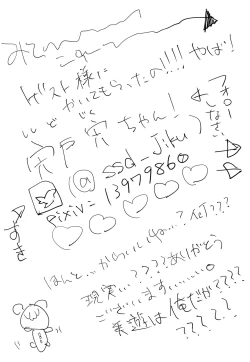 みて
ゲスト様に
かいてもらったの!!!やば!
ししど じく
宍戸 宍ちゃん!
フォローしなさい
よ
(@ssd_Jiku)
pixiv=13979860
♡♡♡♡♡
すき
ほんと…からいいね…?何???
現実…????ありがとう
ございます……。
美遊は俺だが???
?????